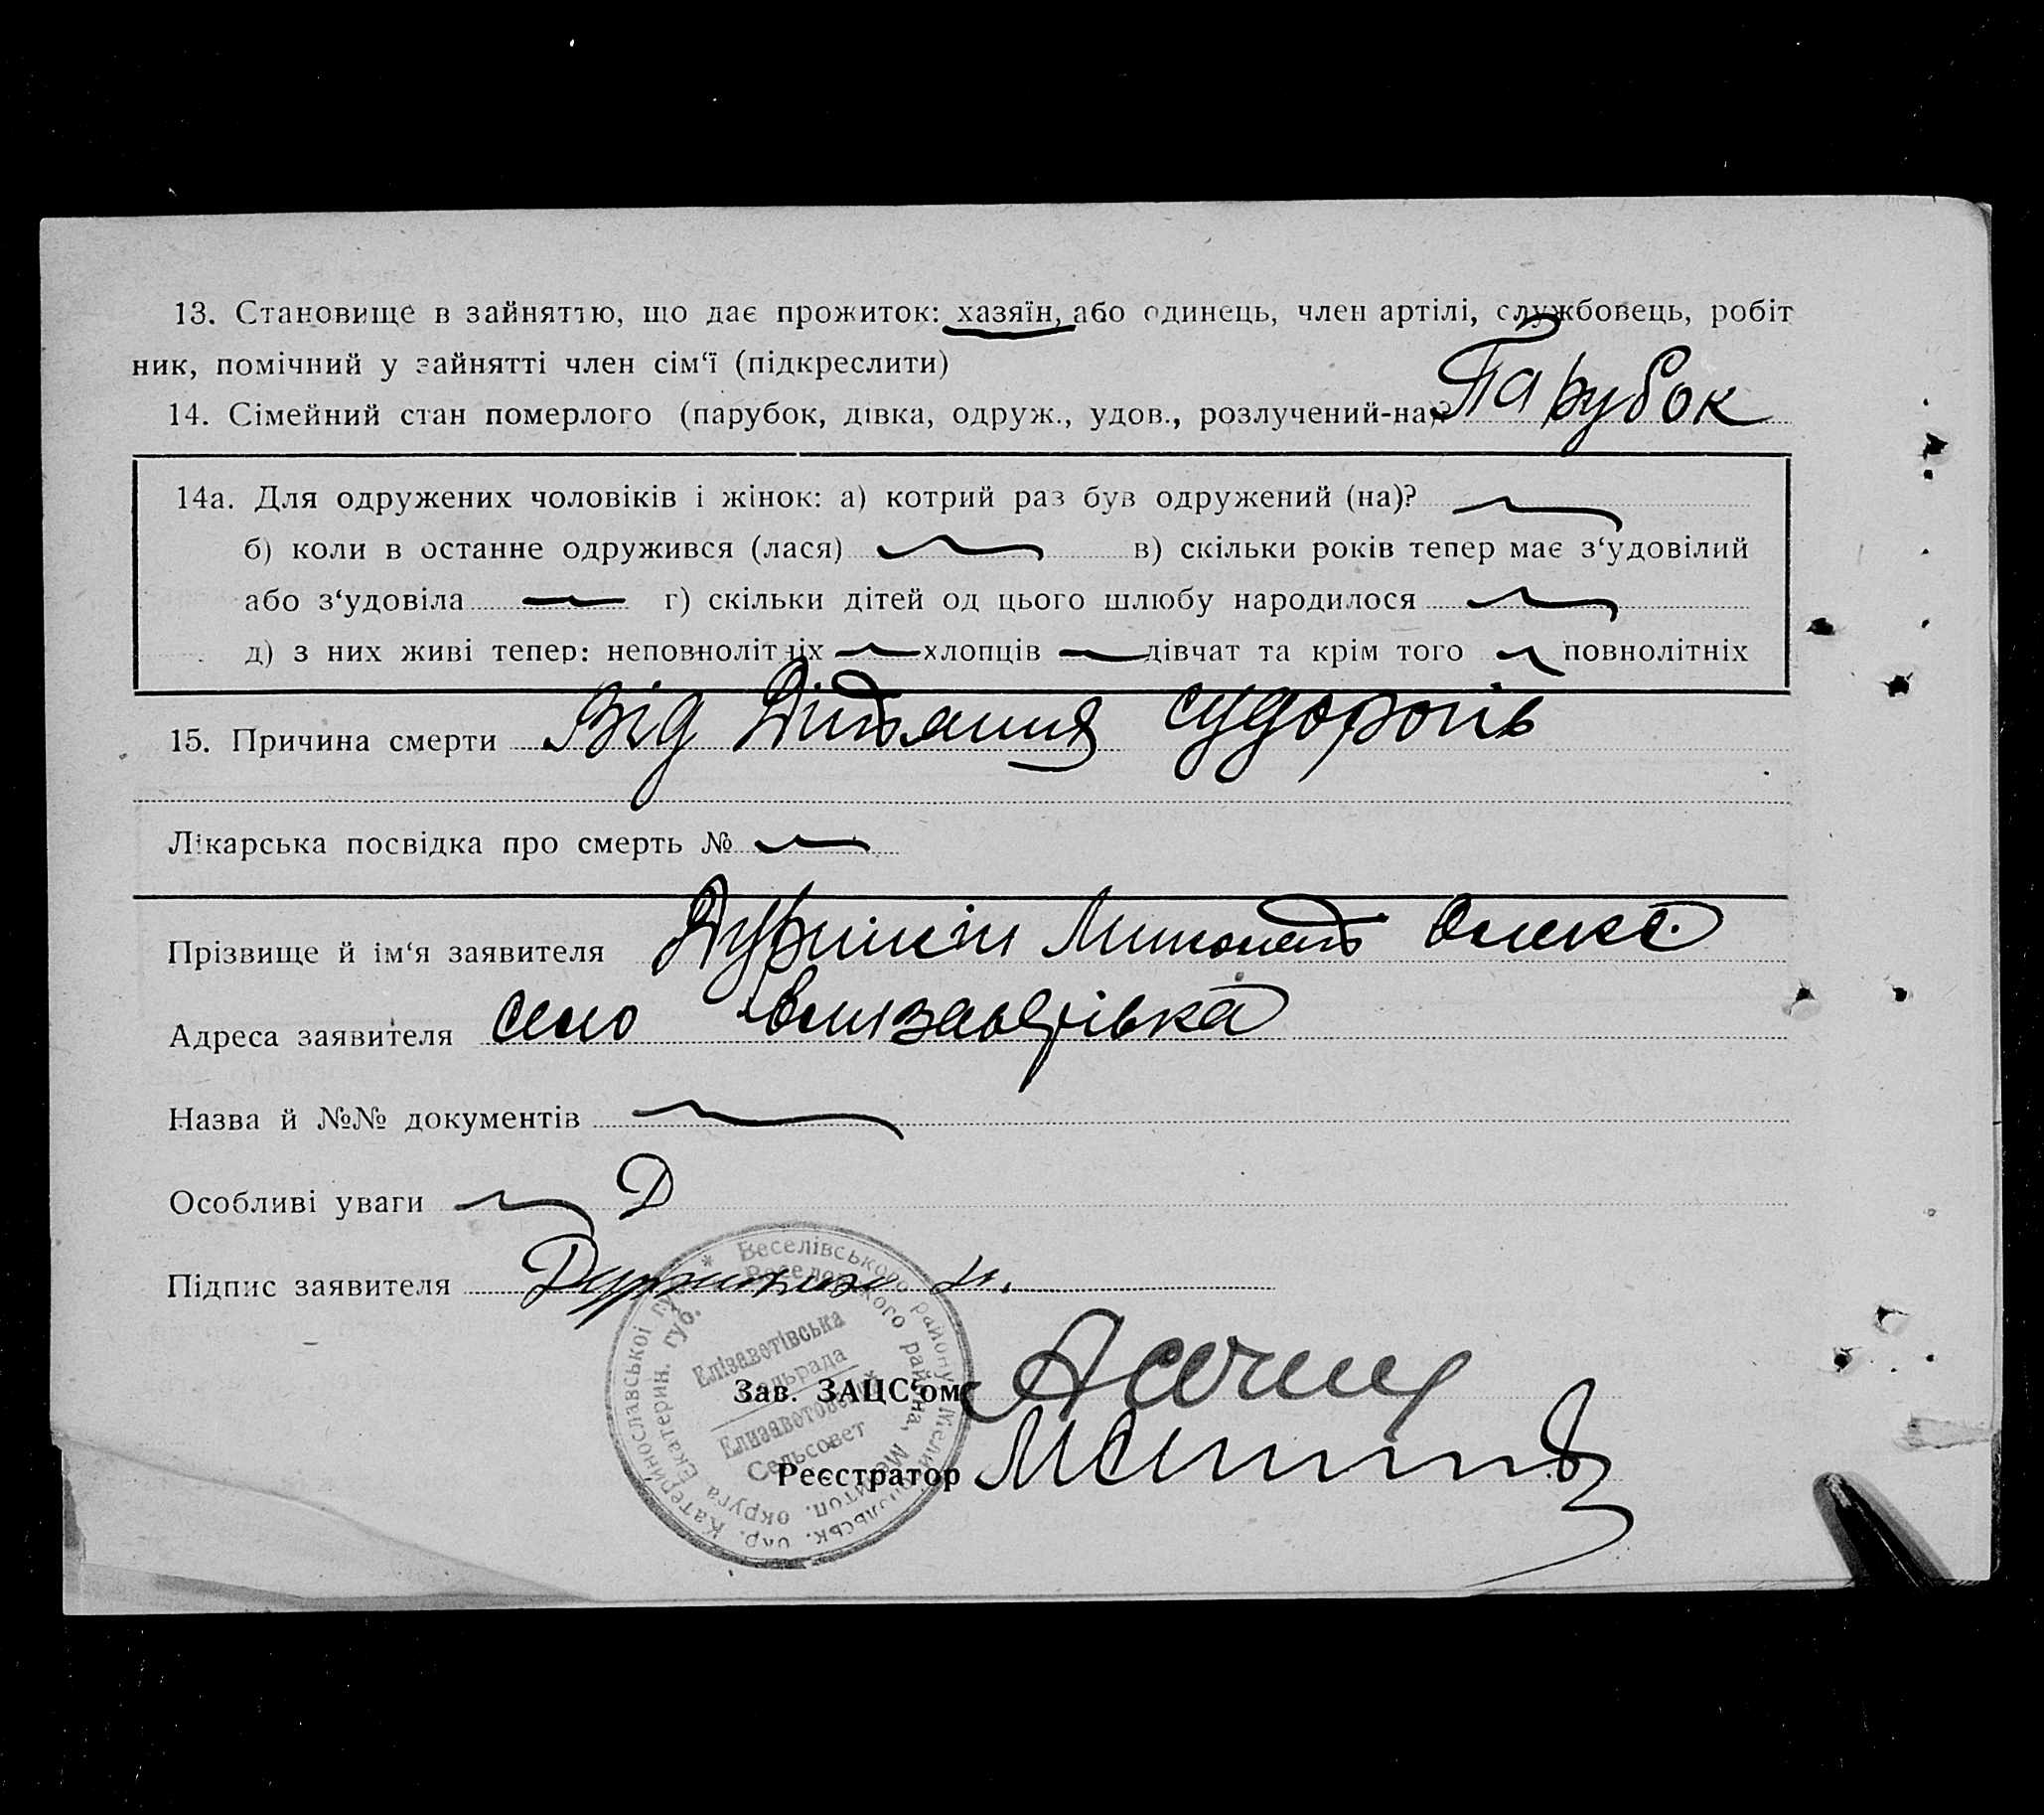 13. Становище в зайняттю, що дає прожиток: хазяїн, або одинець, член артілі, службовець, робіт
ник, помічний у зайнятті член сім‘ї (підкреслити)
14. Сімейний стан померлого (парубок, дівка, одруж., удов., розлучений-на)? Парубок
14а. Для одружених чоловіків і жінок: а) котрий раз був одружений (на)?
б) коли в останне одружився (лася) в) скільки років тепер має з‘удовілий
або з‘удовіла г) скільки дітей од цього шлюбу народилося
д) з них живі тепер: неповнолітніх хлопців дівчат та крім того повнолітніх
15. Причина смерти Від Дітячия судорогів
Лікарська посвідка про смерть №
Прізвище й ім‘я заявителя Олекс.
Адреса заявителя село Єлизаветівка
Назва й №№ документів
Особливі уваги Д
Підпис заявителя
* Веселівського району Мелітопольськ. окр. Катеринославської губ.
Веселовского района, Мелитоп. округа Екатерин. губ.
Елізаветівська
сельрада
Елизаветовский
Сельсовет
Зав. ЗАЦС‘ом
Реєстратор